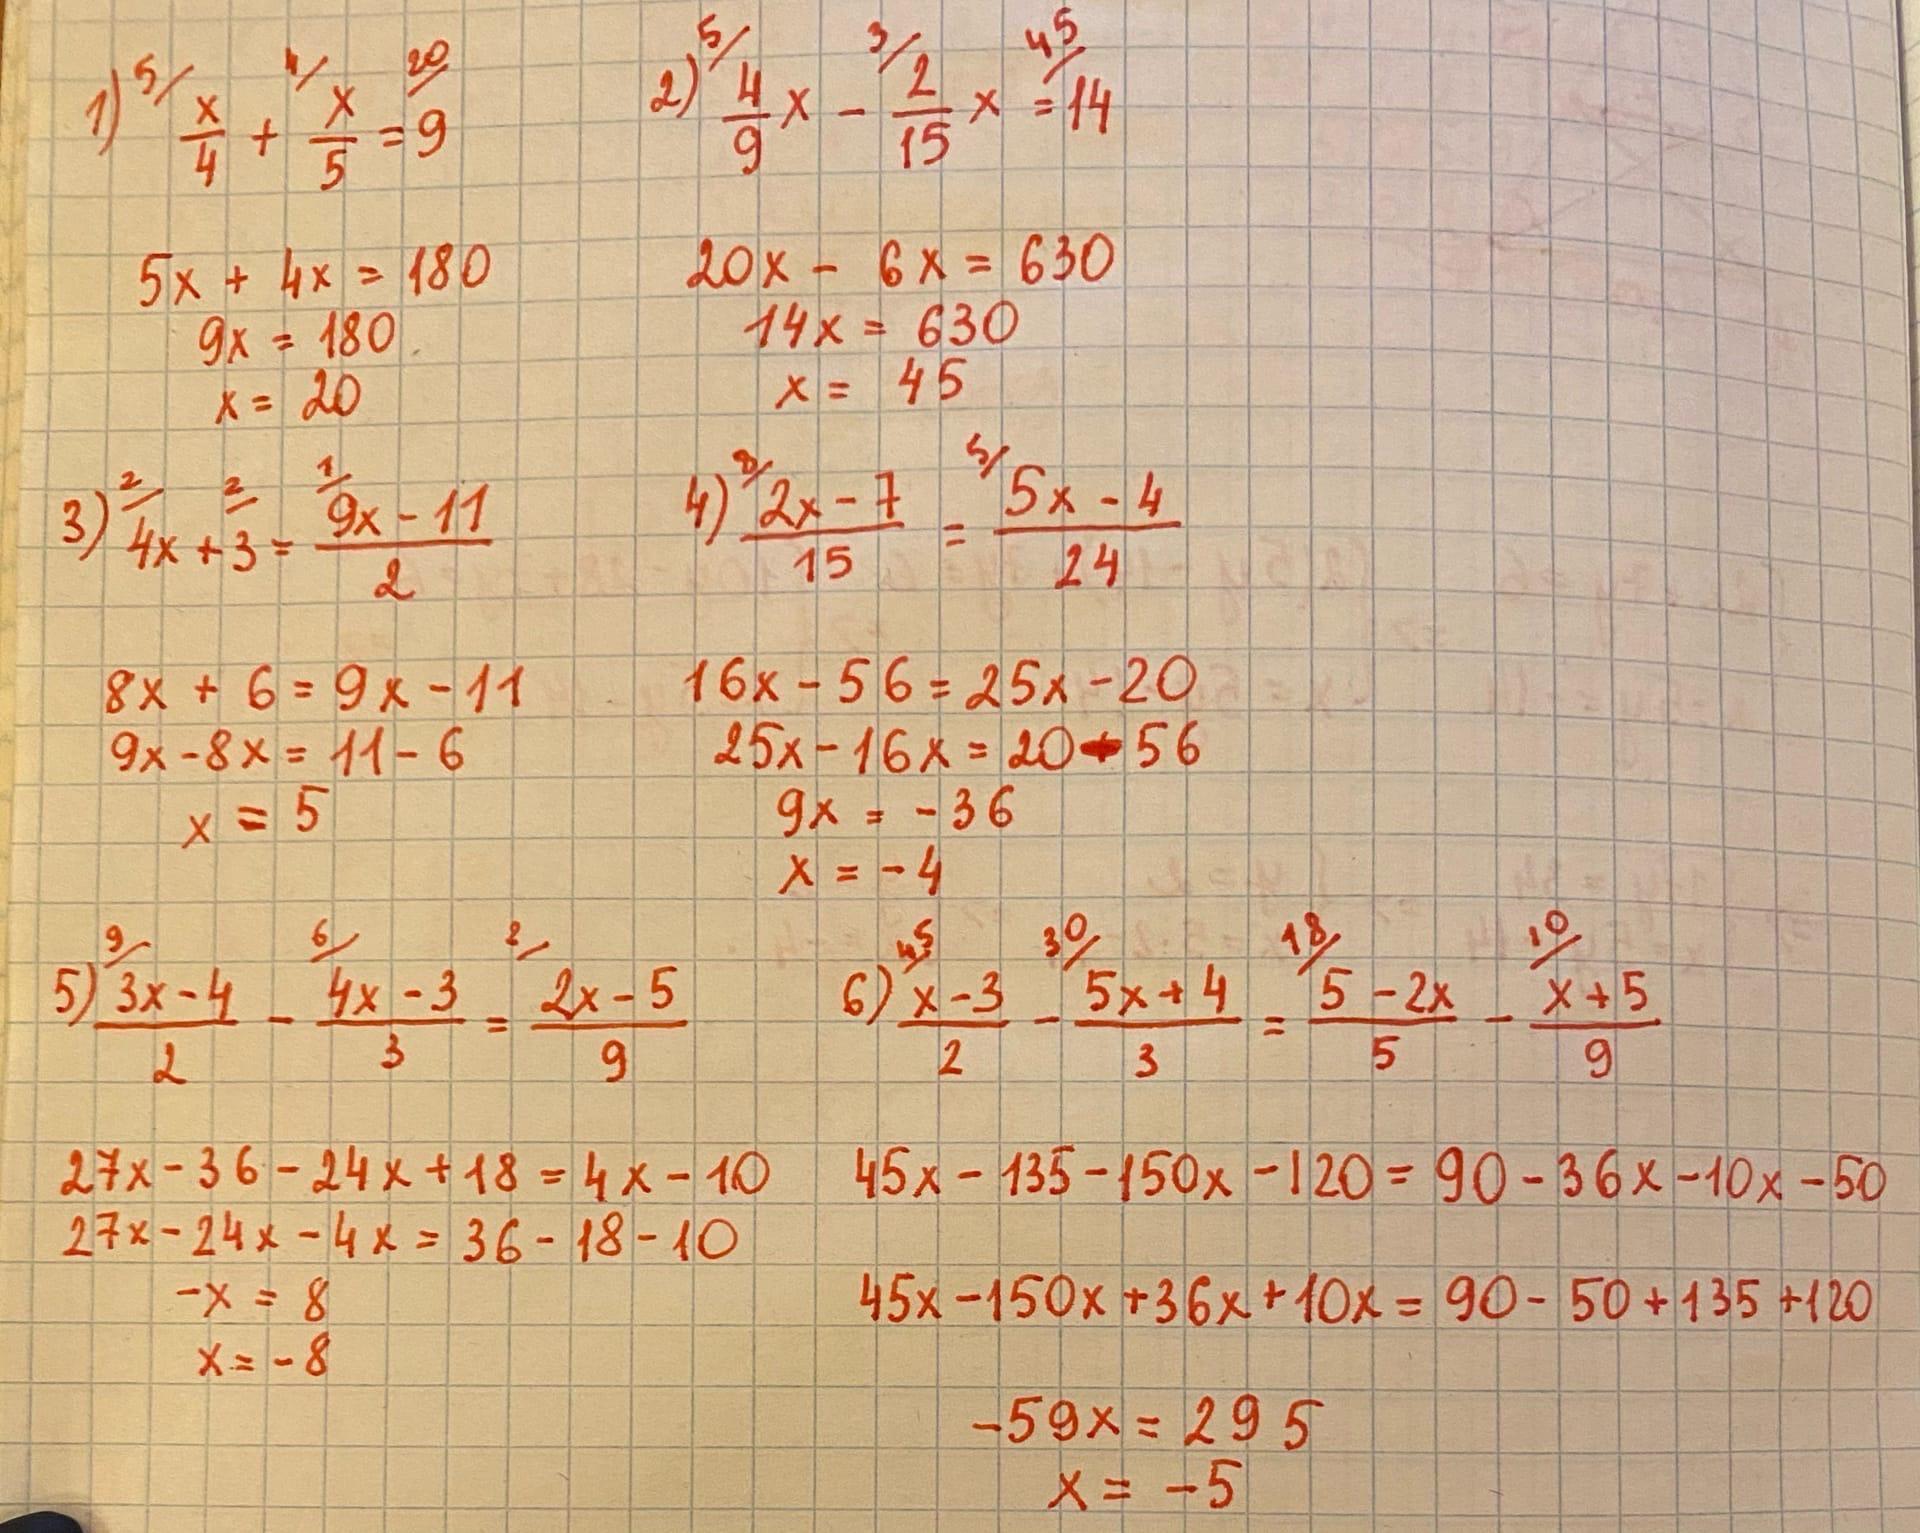 1) 5/ x/4 + 4/ x/5 = 20/ 9
5x + 4x = 180
9x = 180
x = 20
2) 5/ 4/9 x - 3/ 2/15 x = 45/ 14
20x - 6x = 630
14x = 630
x = 45
3) 2/ 4x + 2/ 3 = 1/ 9x - 11 / 2
8x + 6 = 9x - 11
9x - 8x = 11 - 6
x = 5
4) 8/ 2x - 7 / 15 = 5/ 5x - 4 / 24
16x - 56 = 25x - 20
25x - 16x = 20 - 56
9x = -36
x = -4
5) 9/ 3x - 4 / 2 - 6/ 4x - 3 / 3 = 2/ 2x - 5 / 9
27x - 36 - 24x + 18 = 4x - 10
27x - 24x - 4x = 36 - 18 - 10
-x = 8
x = -8
6) 45/ x - 3 / 2 - 30/ 5x + 4 / 3 = 18/ 5 - 2x / 5 - 10/ x + 5 / 9
45x - 135 - 150x - 120 = 90 - 36x - 10x - 50
45x - 150x + 36x + 10x = 90 - 50 + 135 + 120
-59x = 295
x = -5